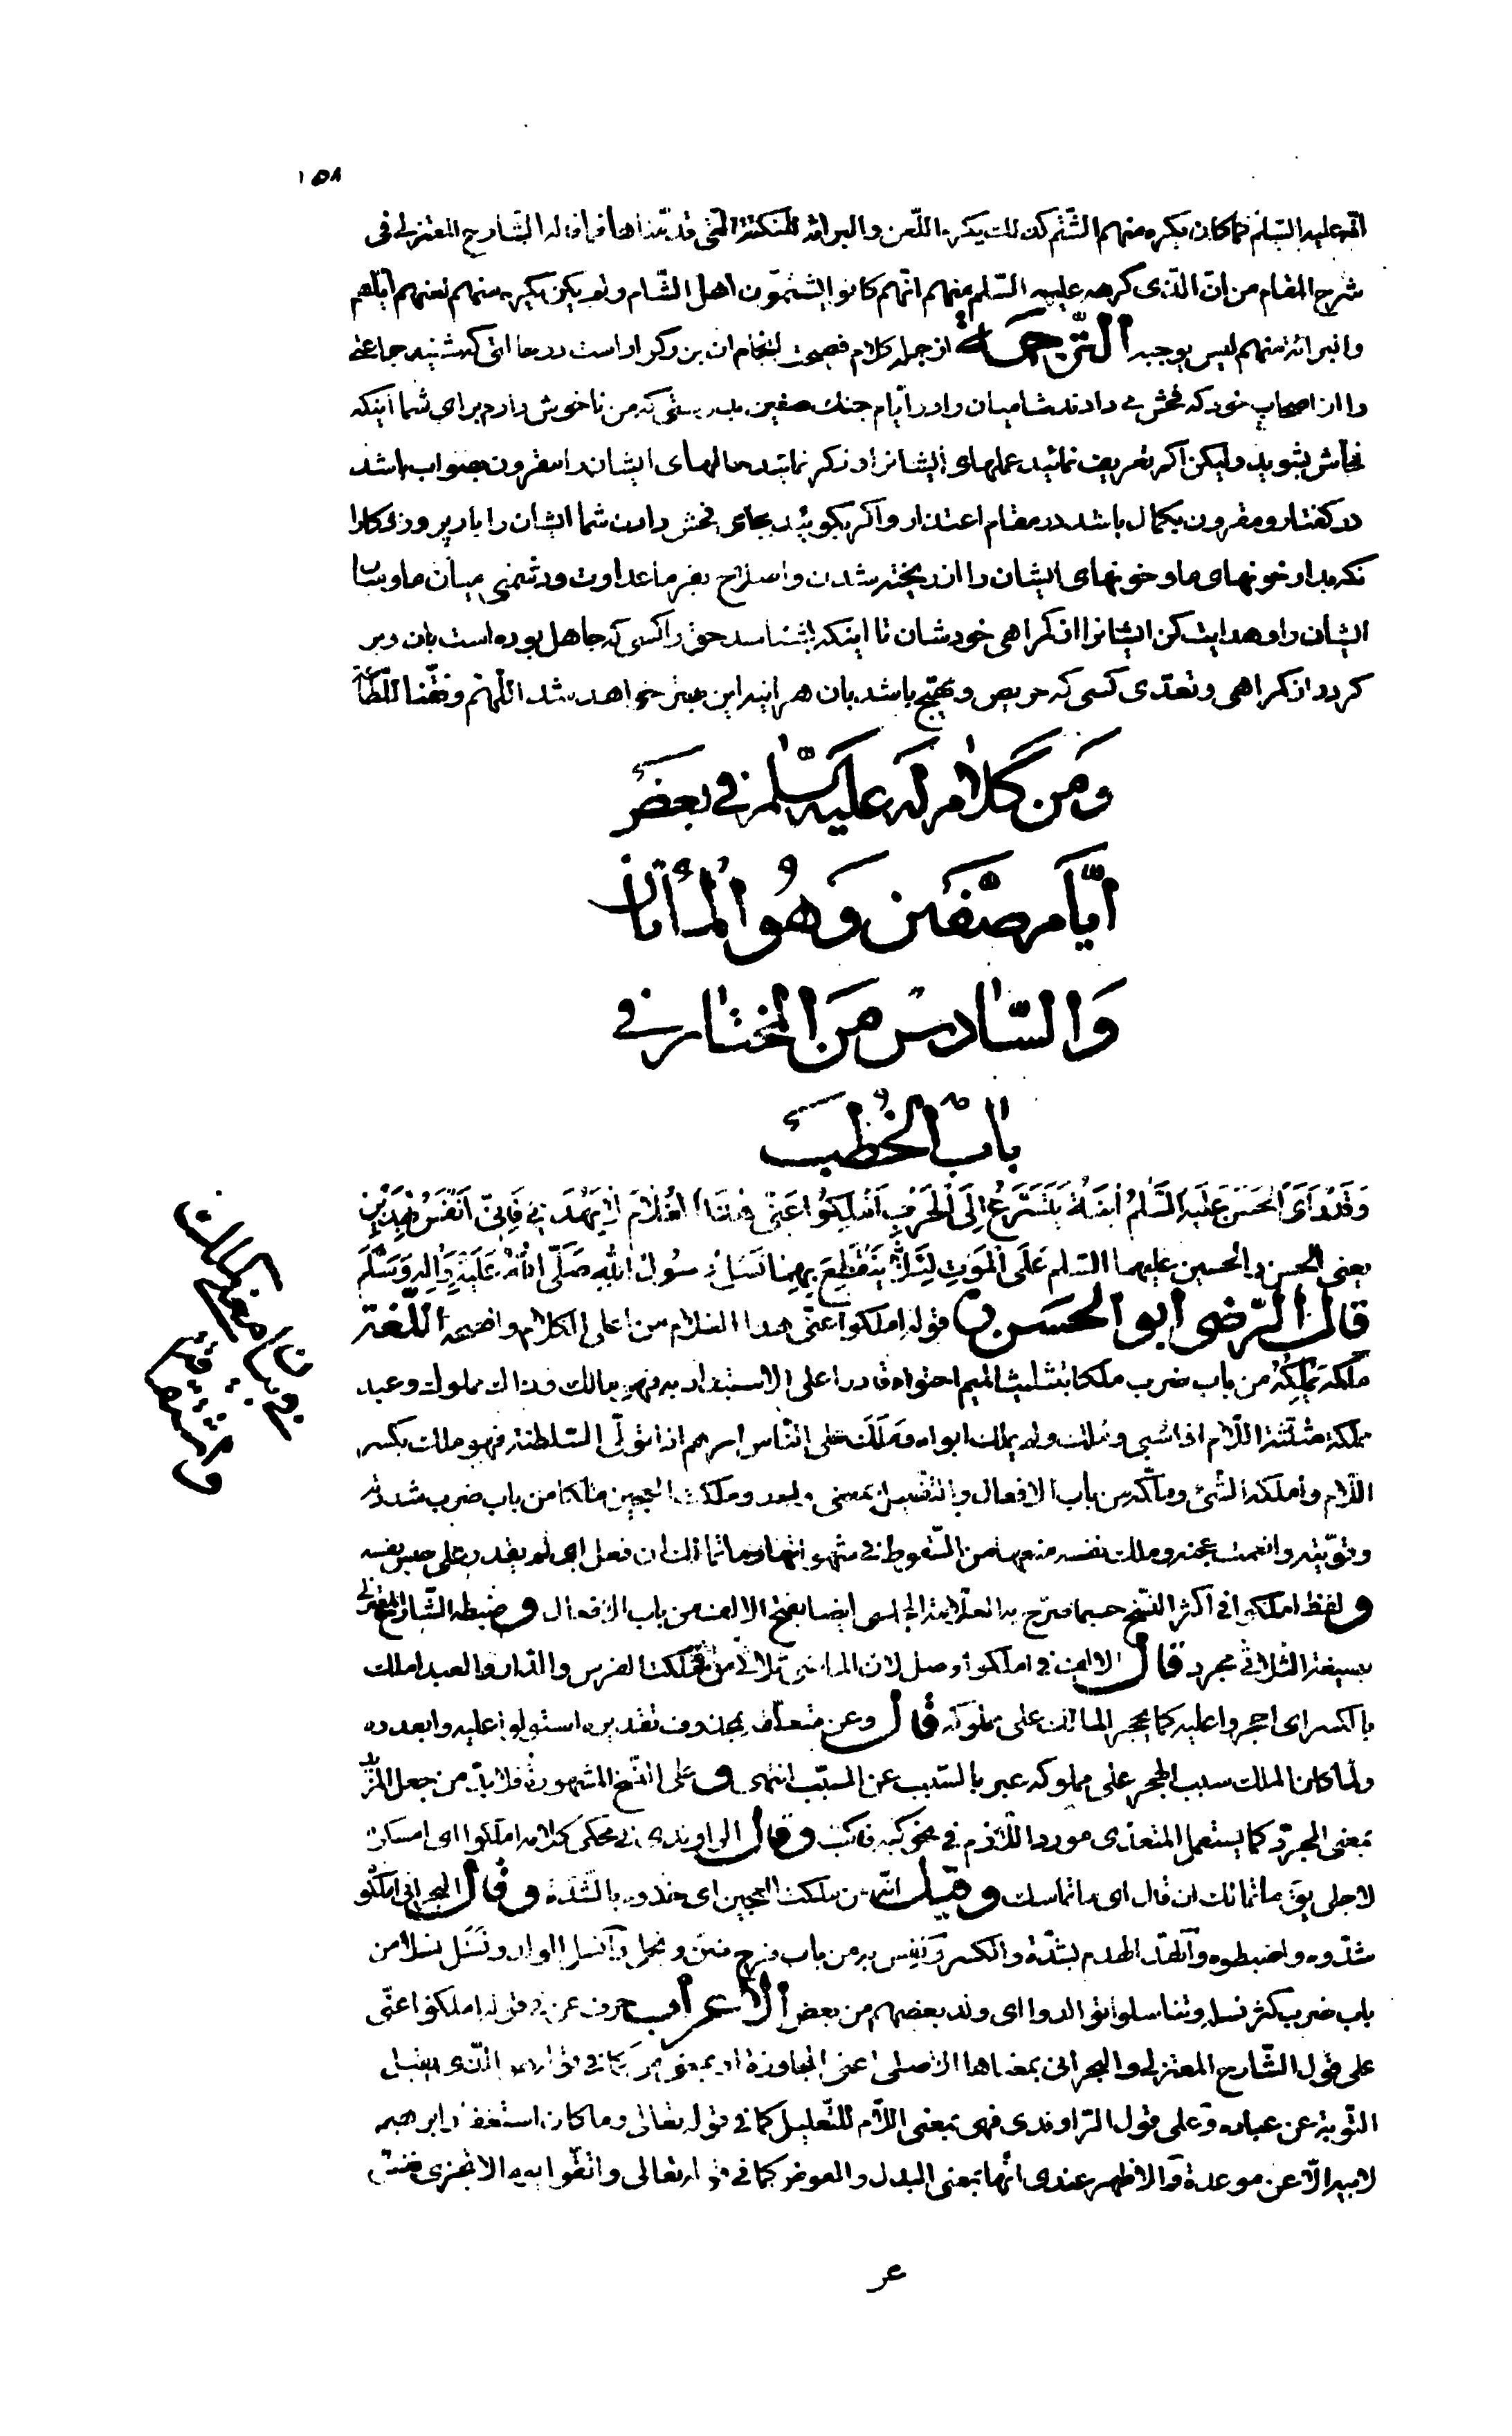 ١٥٨
انّه عليه السّلم كما كان يكره منهم الشّتم كذلك يكره اللّعن والبرائة للنكتة الّتي قد بيّناها فما قاله الشّارح المعتزلي في
شرح المقام من انّ الّذى كرهه عليه السّلم منهم انّهم كانوا يشتمون اهل الشّام ولم يكن يكره منهم لعنهم ايّاهم
والبرائة منهم ليس بوجيه التّرجمة از جمله كلام فصيحت انجام ان بزركوار است در حالتى كه شنيد جماعتى
را از اصحاب خود كه فحش مى دادند شاميان را در ايّام جنك صفين بدرستى كه من ناخوش دارم براى شما اينكه
فحّاش بشويد وليكن اكر تعريف نمائيد عملهاى ايشانرا و ذكر نمائيد حالهاى ايشانرا مقرون بصواب باشد
در كفتار و مقرون بكمال باشد در مقام اعتذار و اكر بكوئيد بجاى فحش دادن شما ايشان را بار پروردكارا
نكه بدار خونهاى ما و خونهاى ايشان را از ريخته شدن و اصلاح بفرما عداوت و دشمنى ميان ما و ميان
ايشان را و هدايت كن ايشانرا از كمراهى خودشان تا اينكه بشناسد حق را كسى كه جاهل بوده است بان و بر
كردد از كمراهى و تعدّى كسى كه حريص و مهيّج باشد بان هر اينه اين بهتر خواهد شد اللّهمّ وفّقنا للطّاعة
ومن كلام له عليه السّلم في بعض
ايّام صفّين وهو المأتان
والسّادس من المختار في
باب الخطب
وقد رأى الحسن عليه السّلم ابنه يتسرّع إلى الحرب أملكوا عنّي هذا الغلام لا يهدّني فإنّي أنفس بهذين
يعني الحسن والحسين عليهما السّلم على الموت لئلّا ينقطع بهما نسل رسول الله صلّى الله عليه واله وسلّم
قال الرّضى ابو الحسن قوله املكوا عنّي هذا الغلام من اعلى الكلام وافصحه اللّغة
ملكه يملكه من باب ضرب ملكا بتثليث الميم احتواه قادرا على الاستبداد به فهو مالك وذاك مملوك وعبد
مملكة مثلّثة اللّام اذا سبى وملك ولم يملك ابواه وملك على النّاس امرهم اذا تولّى السّلطنة فهو ملك بكسر
اللّام واملكه الشّئ وملّكه من باب الافعال والتّفعيل بمعنى واحد وملكت العجين ملكا من باب ضرب شددته
وقوّيته وانعمت عجنه وملك نفسه منعها من السّقوط في شهواتها وما تمالك ان فعل اى لم يقدر على حبس نفسه
ولفظ املكوا في اكثر النّسخ حسبما صرّح به العلّامة المجلسى ايضا بفتح الالف من باب الافعال وضبطه الشّارح المعتزلي
بصيغة الثّلاثي مجرد قال الالف في املكوا وصل لان الماضي ثلاثي من ملكت الفرس والدّار والعبد املك
بالكسر اى احجروا عليه كما يحجر المالك على مملوكه قال وعن متعلّقة بمحذوف تقديره استولوا عليه وابعدوه
ولمّا كان الملك سبب الحجر على مملوكه عبر بالسّبب عن المسبّب انتهى وعلى النّسخ المشهورة فلا بدّ من جعل المزيد
بمعنى المجرّد كما يستعمل المتعدّى مورد اللّازم في نحو كبه فاكبّ وقال الراوندى في محكى كلامه املكوا اى امسكوا
لاجلى يق ما تمالك ان قال اى ما تماسك وقيل انّه من ملكت العجين اى خذوه بالشّدة وقال البحراني املكو
شدّوه واضبطوه والهدّ الهدم بشدّة والكسر ونفس به من باب فرح ضنّ وبخل ونسل الوالد ونسل نسلا من
باب ضرب كثر نسله وتناسلوا توالدوا اى ولد بعضهم من بعض الاعراب حرف عن في قوله املكوا عنّى
على قول الشّارح المعتزلي والبحرانى بمعناها الاصلى اعنى المجاوزة او بمعنى من كما في قوله هو الّذى يقبل
التّوبة عن عباده وعلى قول الرّاوندى فهى بمعنى اللّام للتّعليل كما في قوله تعالى وما كان استغفار ابرهيم
لابيه الّا عن موعدة والاظهر عندى انّها بمعنى البدل والعوض كما في قوله تعالى واتّقوا يوما لا تجزى نفس